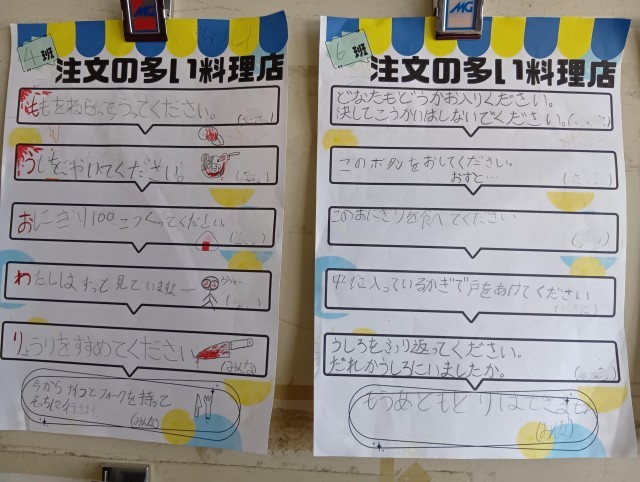 MG
4班
注文の多い料理店
ももをねらってうってください。
うしをやいてください。
おにぎり100こつくってください
わたしはずっと見ていますね
りょうりをすすめてください
(みんな)
今からナイフとフォークを持って
そっちに行きます
(みんな)
MG
6班
注文の多い料理店
どなたもどうかお入りください。
決してこうかいはしないでください。
このボタンをおしてください。
おすと…
このおにぎりを食べてください
中に入っているかぎで戸をあけてください
うしろをふり返ってください。
だれかうしろにいましたか。
もうあともどりはできない
(みんな)